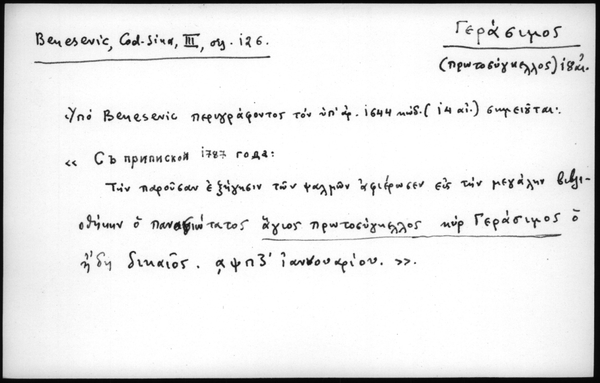 Benesevic, Cod-Sina, III, σγ. 126.
Γεράσιμος
(πρωτοσύγκελλος) 18 αἰ.
Ὑπό Benesevic περιγράφοντος τόν ὑπ' ἀρ. 1644 κώδ. (14 αἰ.) σημειοῦται:
« Съ припиской 1787 года:
Τήν παροῦσαν ἐξήγησιν τῶν ψαλμῶν ἀφιέρωσεν εἰς τήν μεγάλην βιβλι-
οθήκην ὁ παναγιώτατος ἅγιος πρωτοσύγκελλος κύρ Γεράσιμος ὁ
ἤδη δικαῖος. αψπζ' ἰανουαρίου. ».